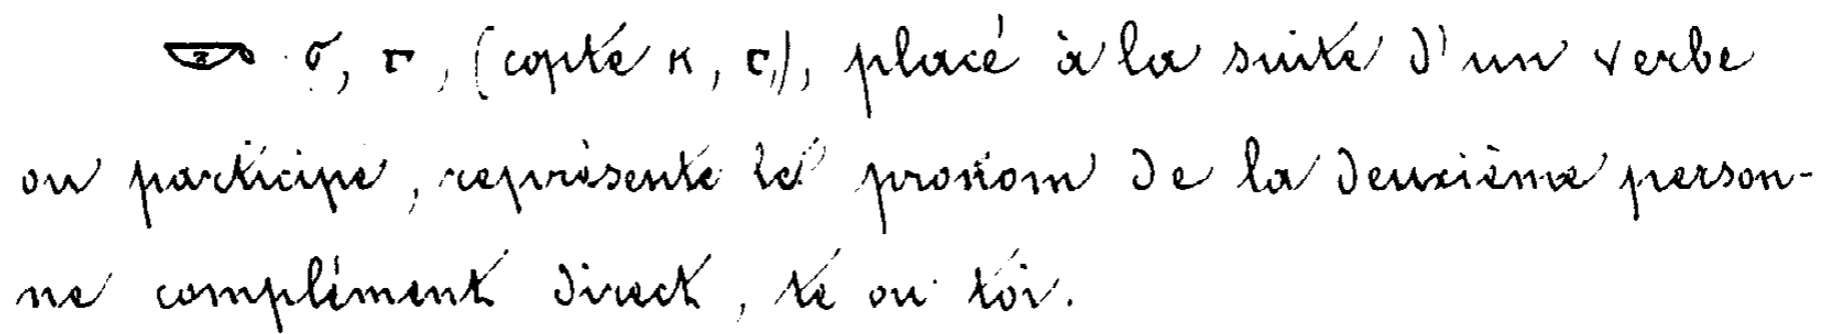 𓎡 σ, ⲅ, (copte ⲕ, ⲅ,), placé à la suite d'un verbe
ou participe, représente le pronom de la deuxième person-
ne complément direct, te ou toi.